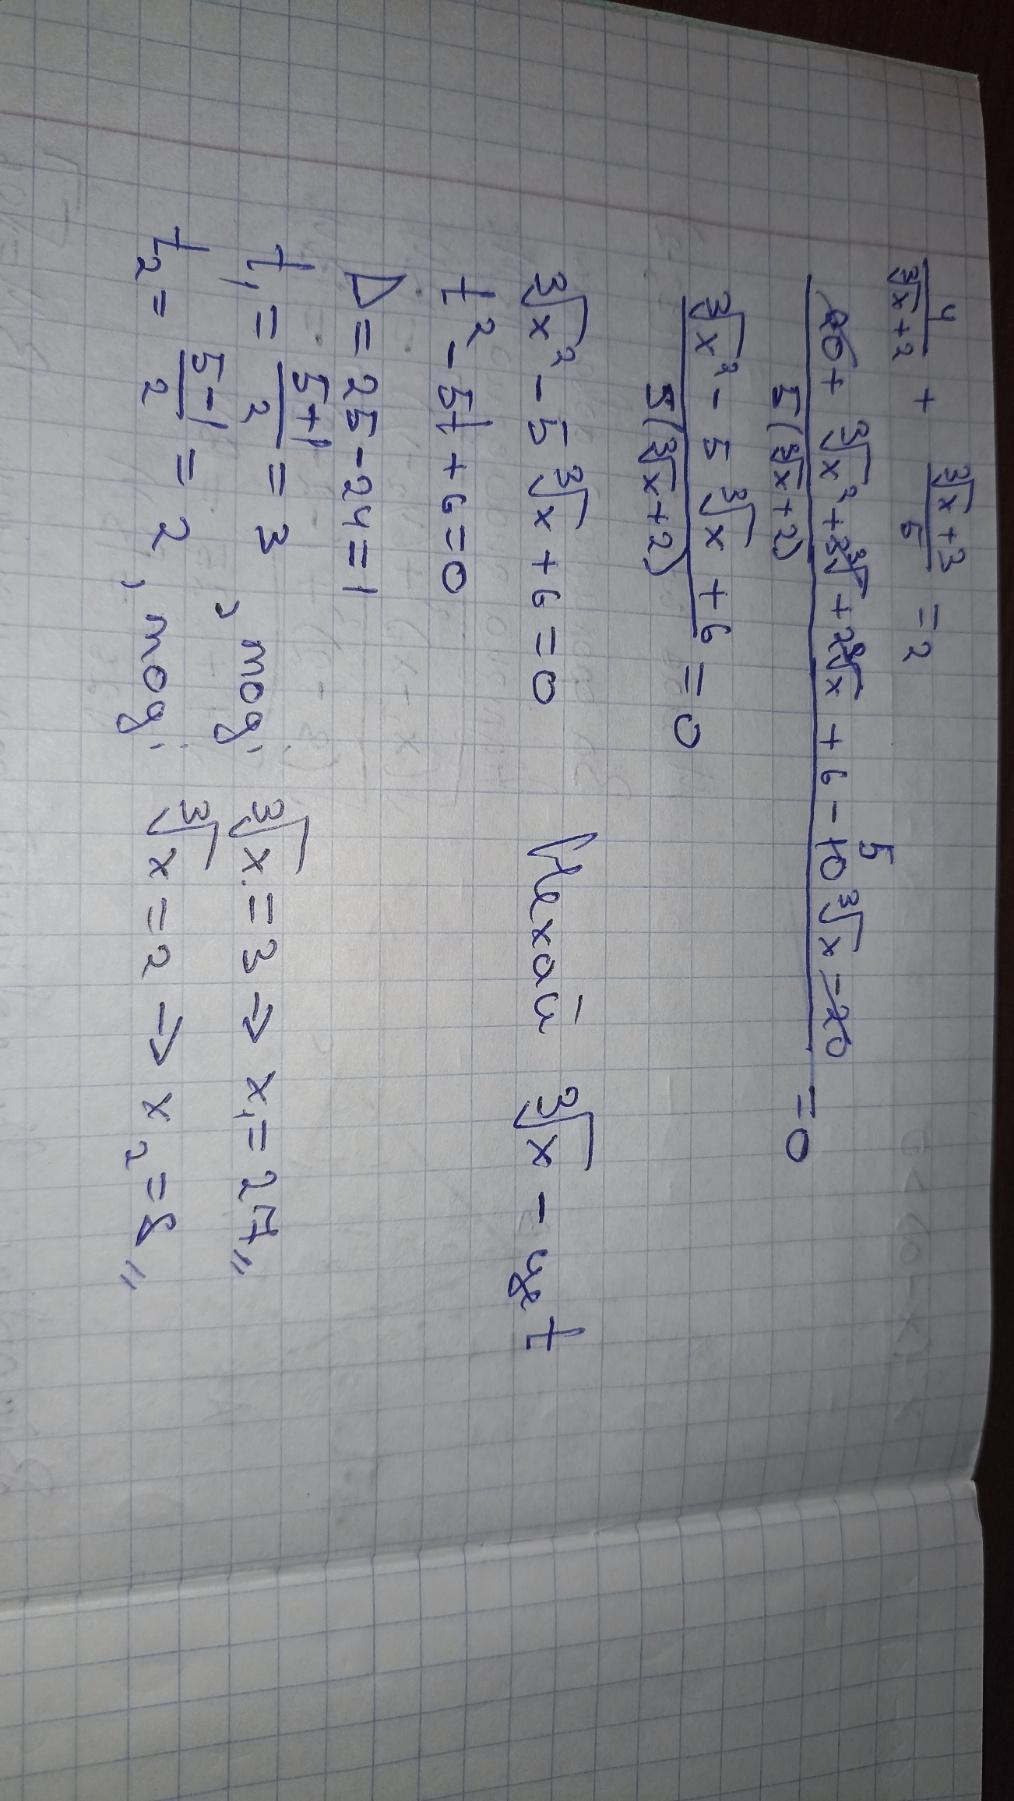 4/(∛x+2) + (∛x+3)/5 = 2
(20 + ∛x² + 3∛ + 2∛x + 6 - 10 5 ∛x - 20)/(5(∛x+2)) = 0
(∛x² - 5∛x + 6)/(5(∛x+2)) = 0
∛x² - 5∛x + 6 = 0 Нехай ∛x - це t
t² - 5t + 6 = 0
Δ = 25 - 24 = 1
t₁ = (5+1)/2 = 3, тоді ∛x = 3 ⇒ x₁ = 27"
t₂ = (5-1)/2 = 2, тоді ∛x = 2 ⇒ x₂ = 8"